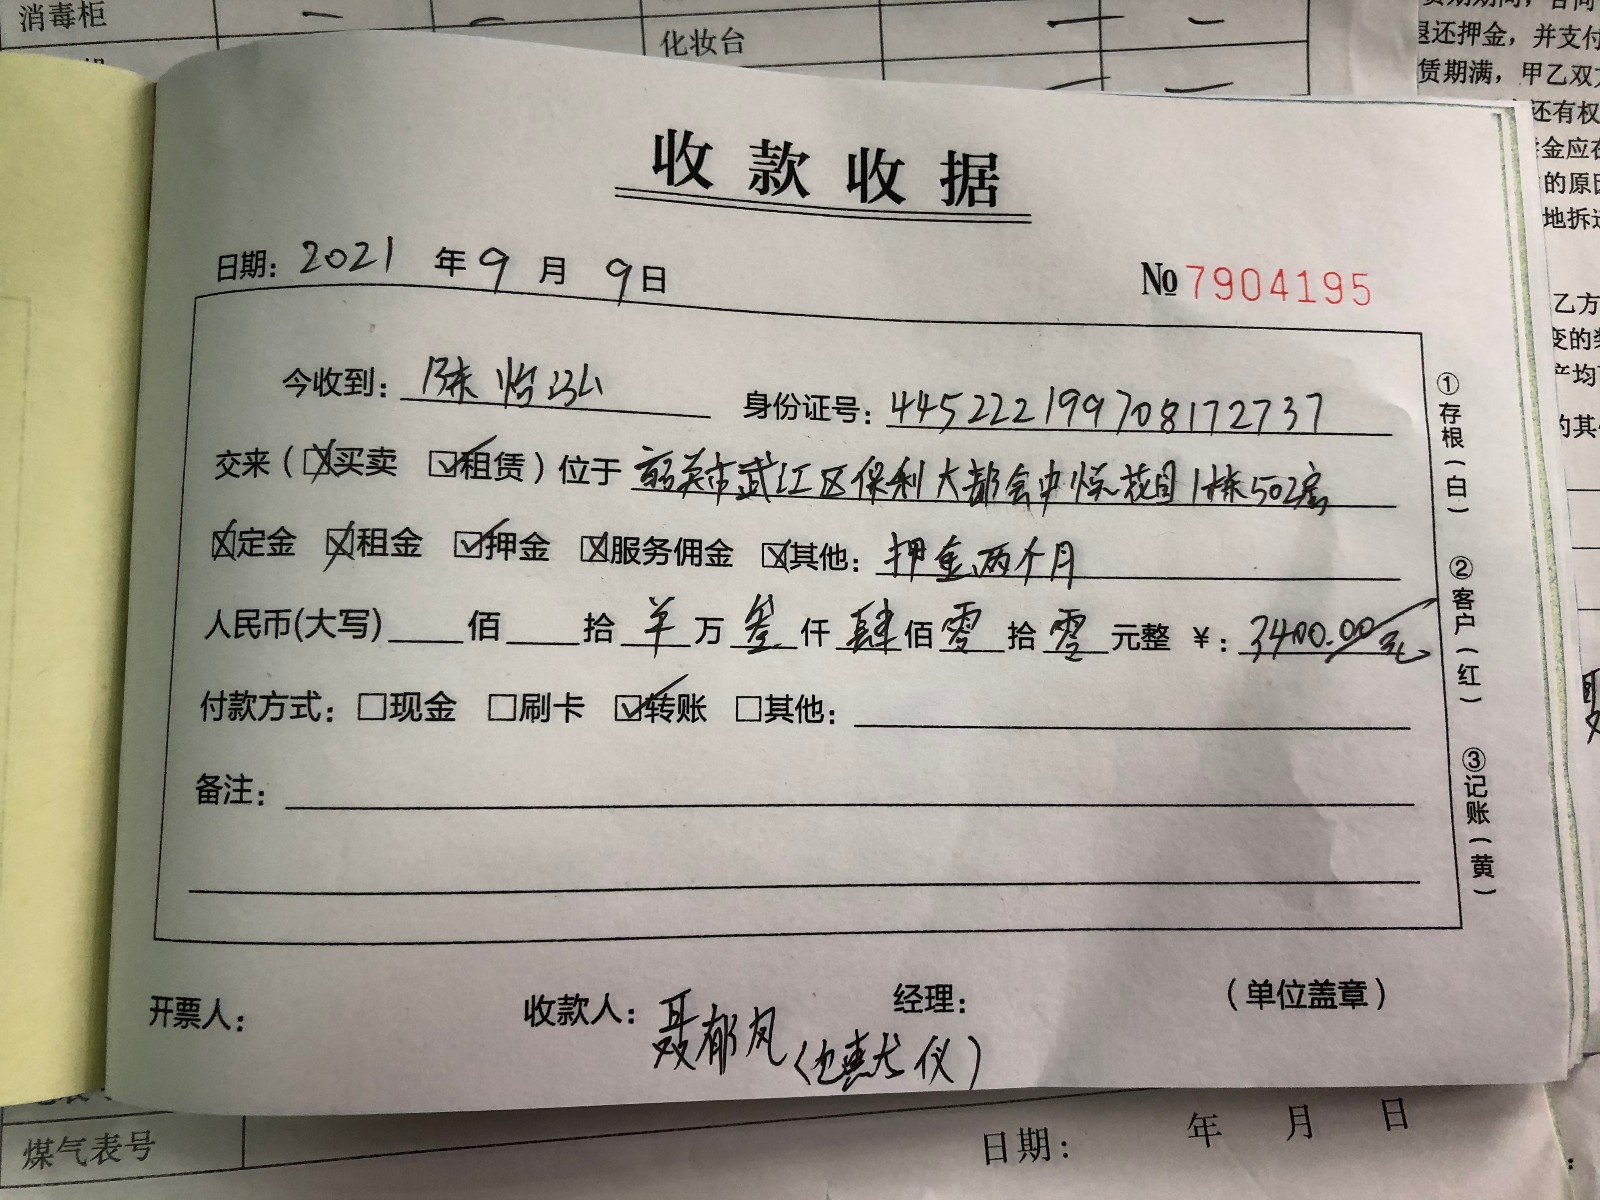 消毒柜
化妆台
退还押金，并支付
赁期满，甲乙双方
还有权
金应在
的原因
地拆
乙方
变的
产均
的其
收款收据
日期：2021年9月9日
№7904195
今收到：陈怡泓 身份证号：445222199708172737
交来（☒买卖 ☑租赁）位于韶关市武江区保利大都会中惊花园1栋502房
☒定金 ☒租金 ☑押金 ☒服务佣金 ☒其他：押金两个月
人民币(大写)____佰____拾 羊 万 叁 仟 肆 佰 零 拾 零 元整 ￥：3400.00元
付款方式：☐现金 ☐刷卡 ☑转账 ☐其他：
备注：
①存根（白）
②客户（红）
③记账（黄）
开票人： 收款人：聂郁凤 经理： （单位盖章）
煤气表号
日期： 年 月 日